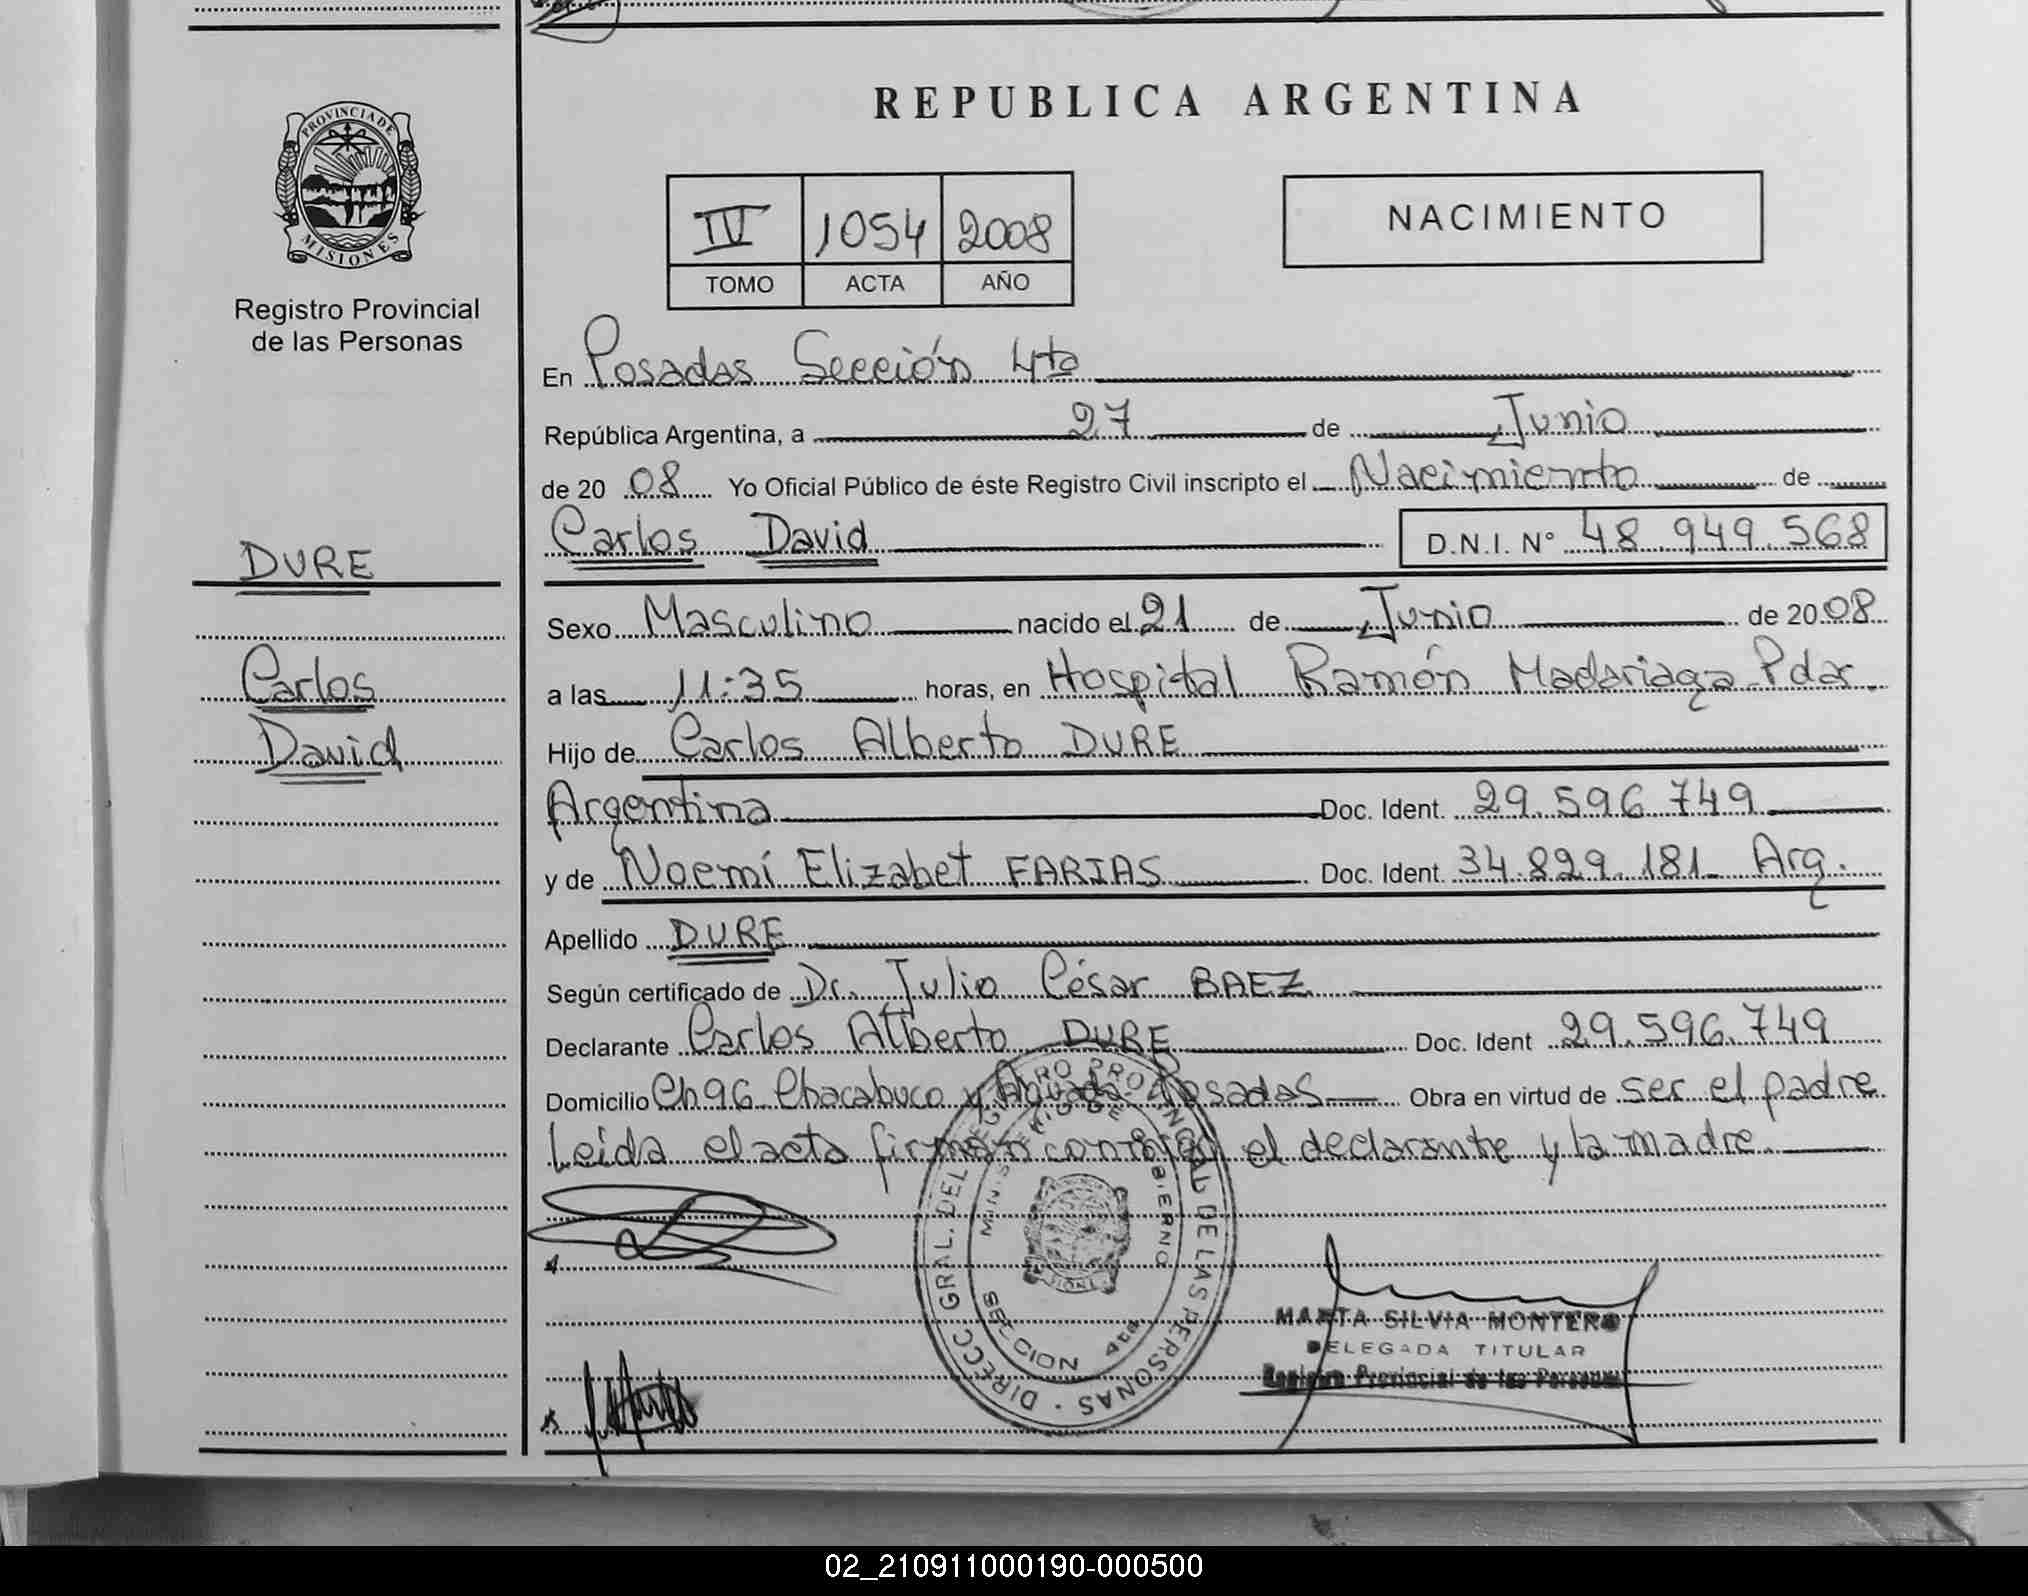 REPUBLICA ARGENTINA
PROVINCIA DE
MISIONES
Registro Provincial
de las Personas
IV 1054 2008
TOMO ACTA AÑO
NACIMIENTO
DURE
Carlos
David
En Posadas Sección 4ta
República Argentina, a 27 de Junio
de 20 08 Yo Oficial Público de éste Registro Civil inscripto el Nacimiento de
Carlos David D.N.I. N° 48.949.568
Sexo Masculino nacido el 21 de Junio de 20 08
a las 11:35 horas, en Hospital Ramón Madariaga Pdas.
Hijo de Carlos Alberto DURE
Argentina Doc. Ident. 29.596.749
y de Noemí Elizabet FARIAS Doc. Ident. 34.829.181 Arg.
Apellido DURE
Según certificado de Dr. Julio César BAEZ
Declarante Carlos Alberto DURE Doc. Ident 29.596.749
Domicilio Ch 96 Chacabuco y Posadas Obra en virtud de ser el padre
Leída el acta firman conmigo el declarante y la madre
DIRECC. GRAL. DEL REGISTRO PROVINCIAL DE LAS PERSONAS
MINISTERIO DE GOBIERNO
SECCION 4ta
MARTA SILVIA MONTERO
DELEGADA TITULAR
Registro Provincial de las Personas
02_210911000190-000500